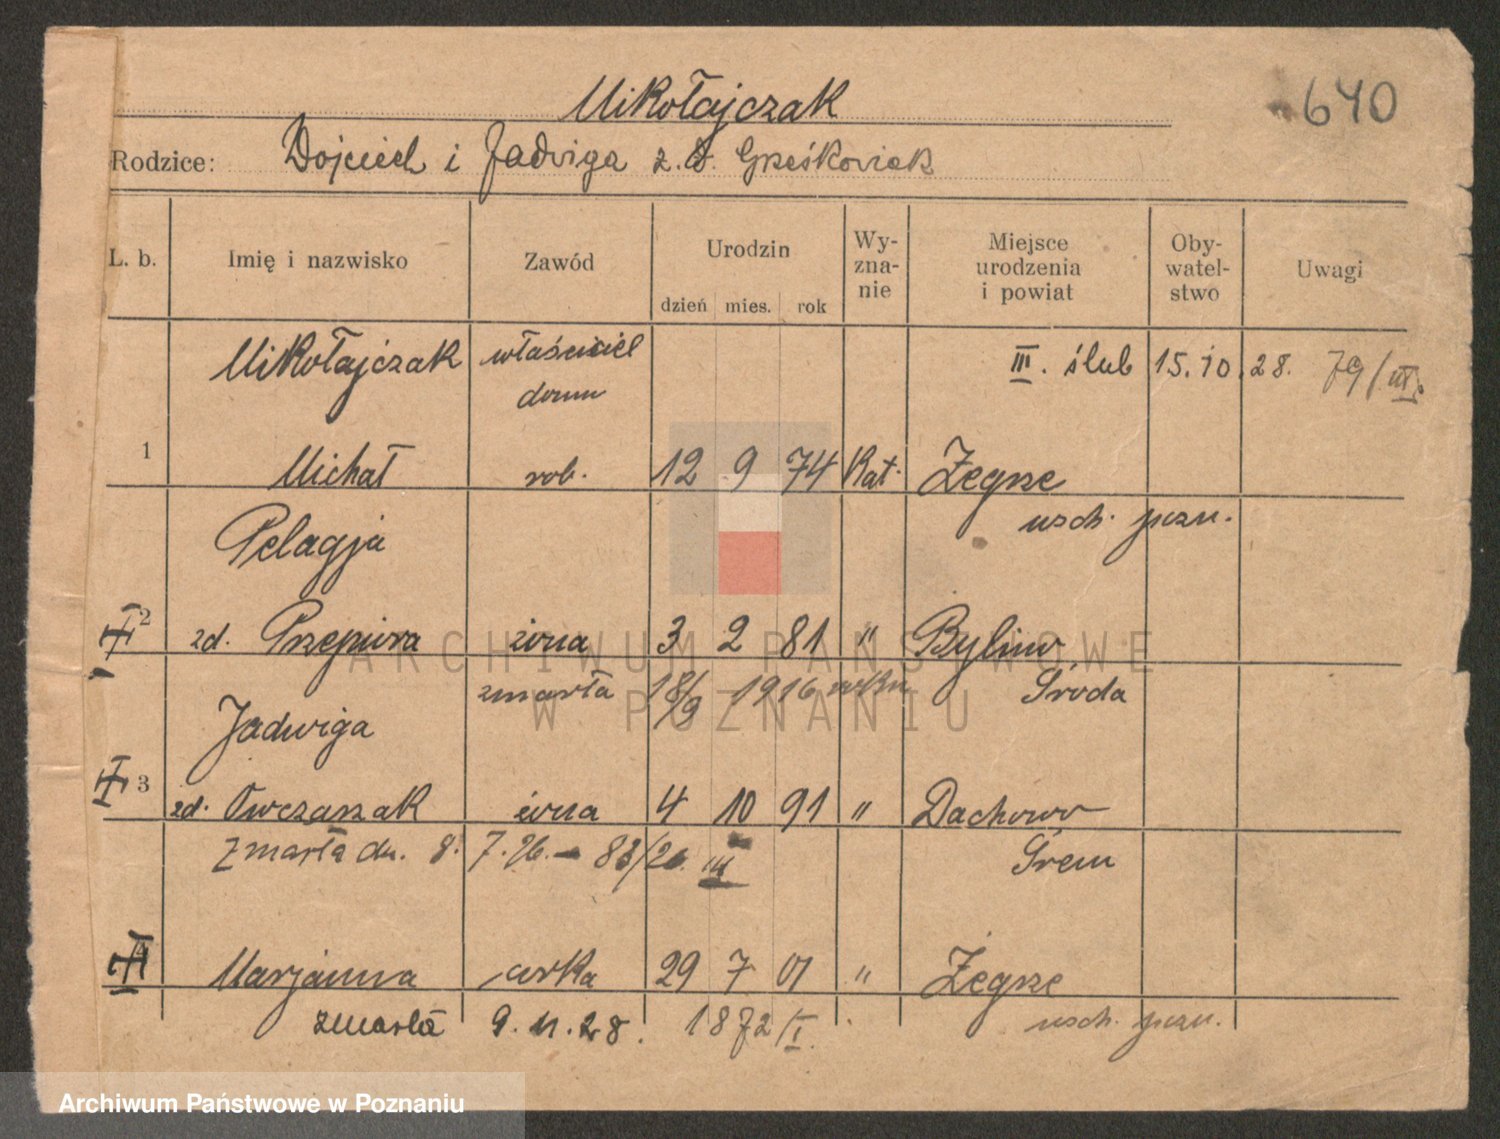 Mikołajczak
640
Rodzice: Wojciech i Jadwiga z. d. Grześkowiak
L. b. Imię i nazwisko Zawód Urodzin dzień mies. rok Wy-zna-nie Miejsce urodzenia i powiat Oby-watel-stwo Uwagi
Mikołajczak właściciel III. ślub 15.10.28. 79/III.
domu
1 Michał rob. 12 9 74 Kat. Żegrze
wsch. pozn.
Pelagja
2 zd. Przepiora żona 3 2 81 " Bylin
zmarła 18/9 1916 roku Środa
Jadwiga
3 zd. Owczarzak żona 4 10 91 " Dachowo
Zmarła dn. 8. 7. 26. – 83/26. III Śrem
4 Marjanna córka 29 7 01 " Żegrze
zmarła 9. 11. 28. 1872/I. wsch. pozn.
ARCHIWUM PAŃSTWOWE
W POZNANIU
Archiwum Państwowe w Poznaniu